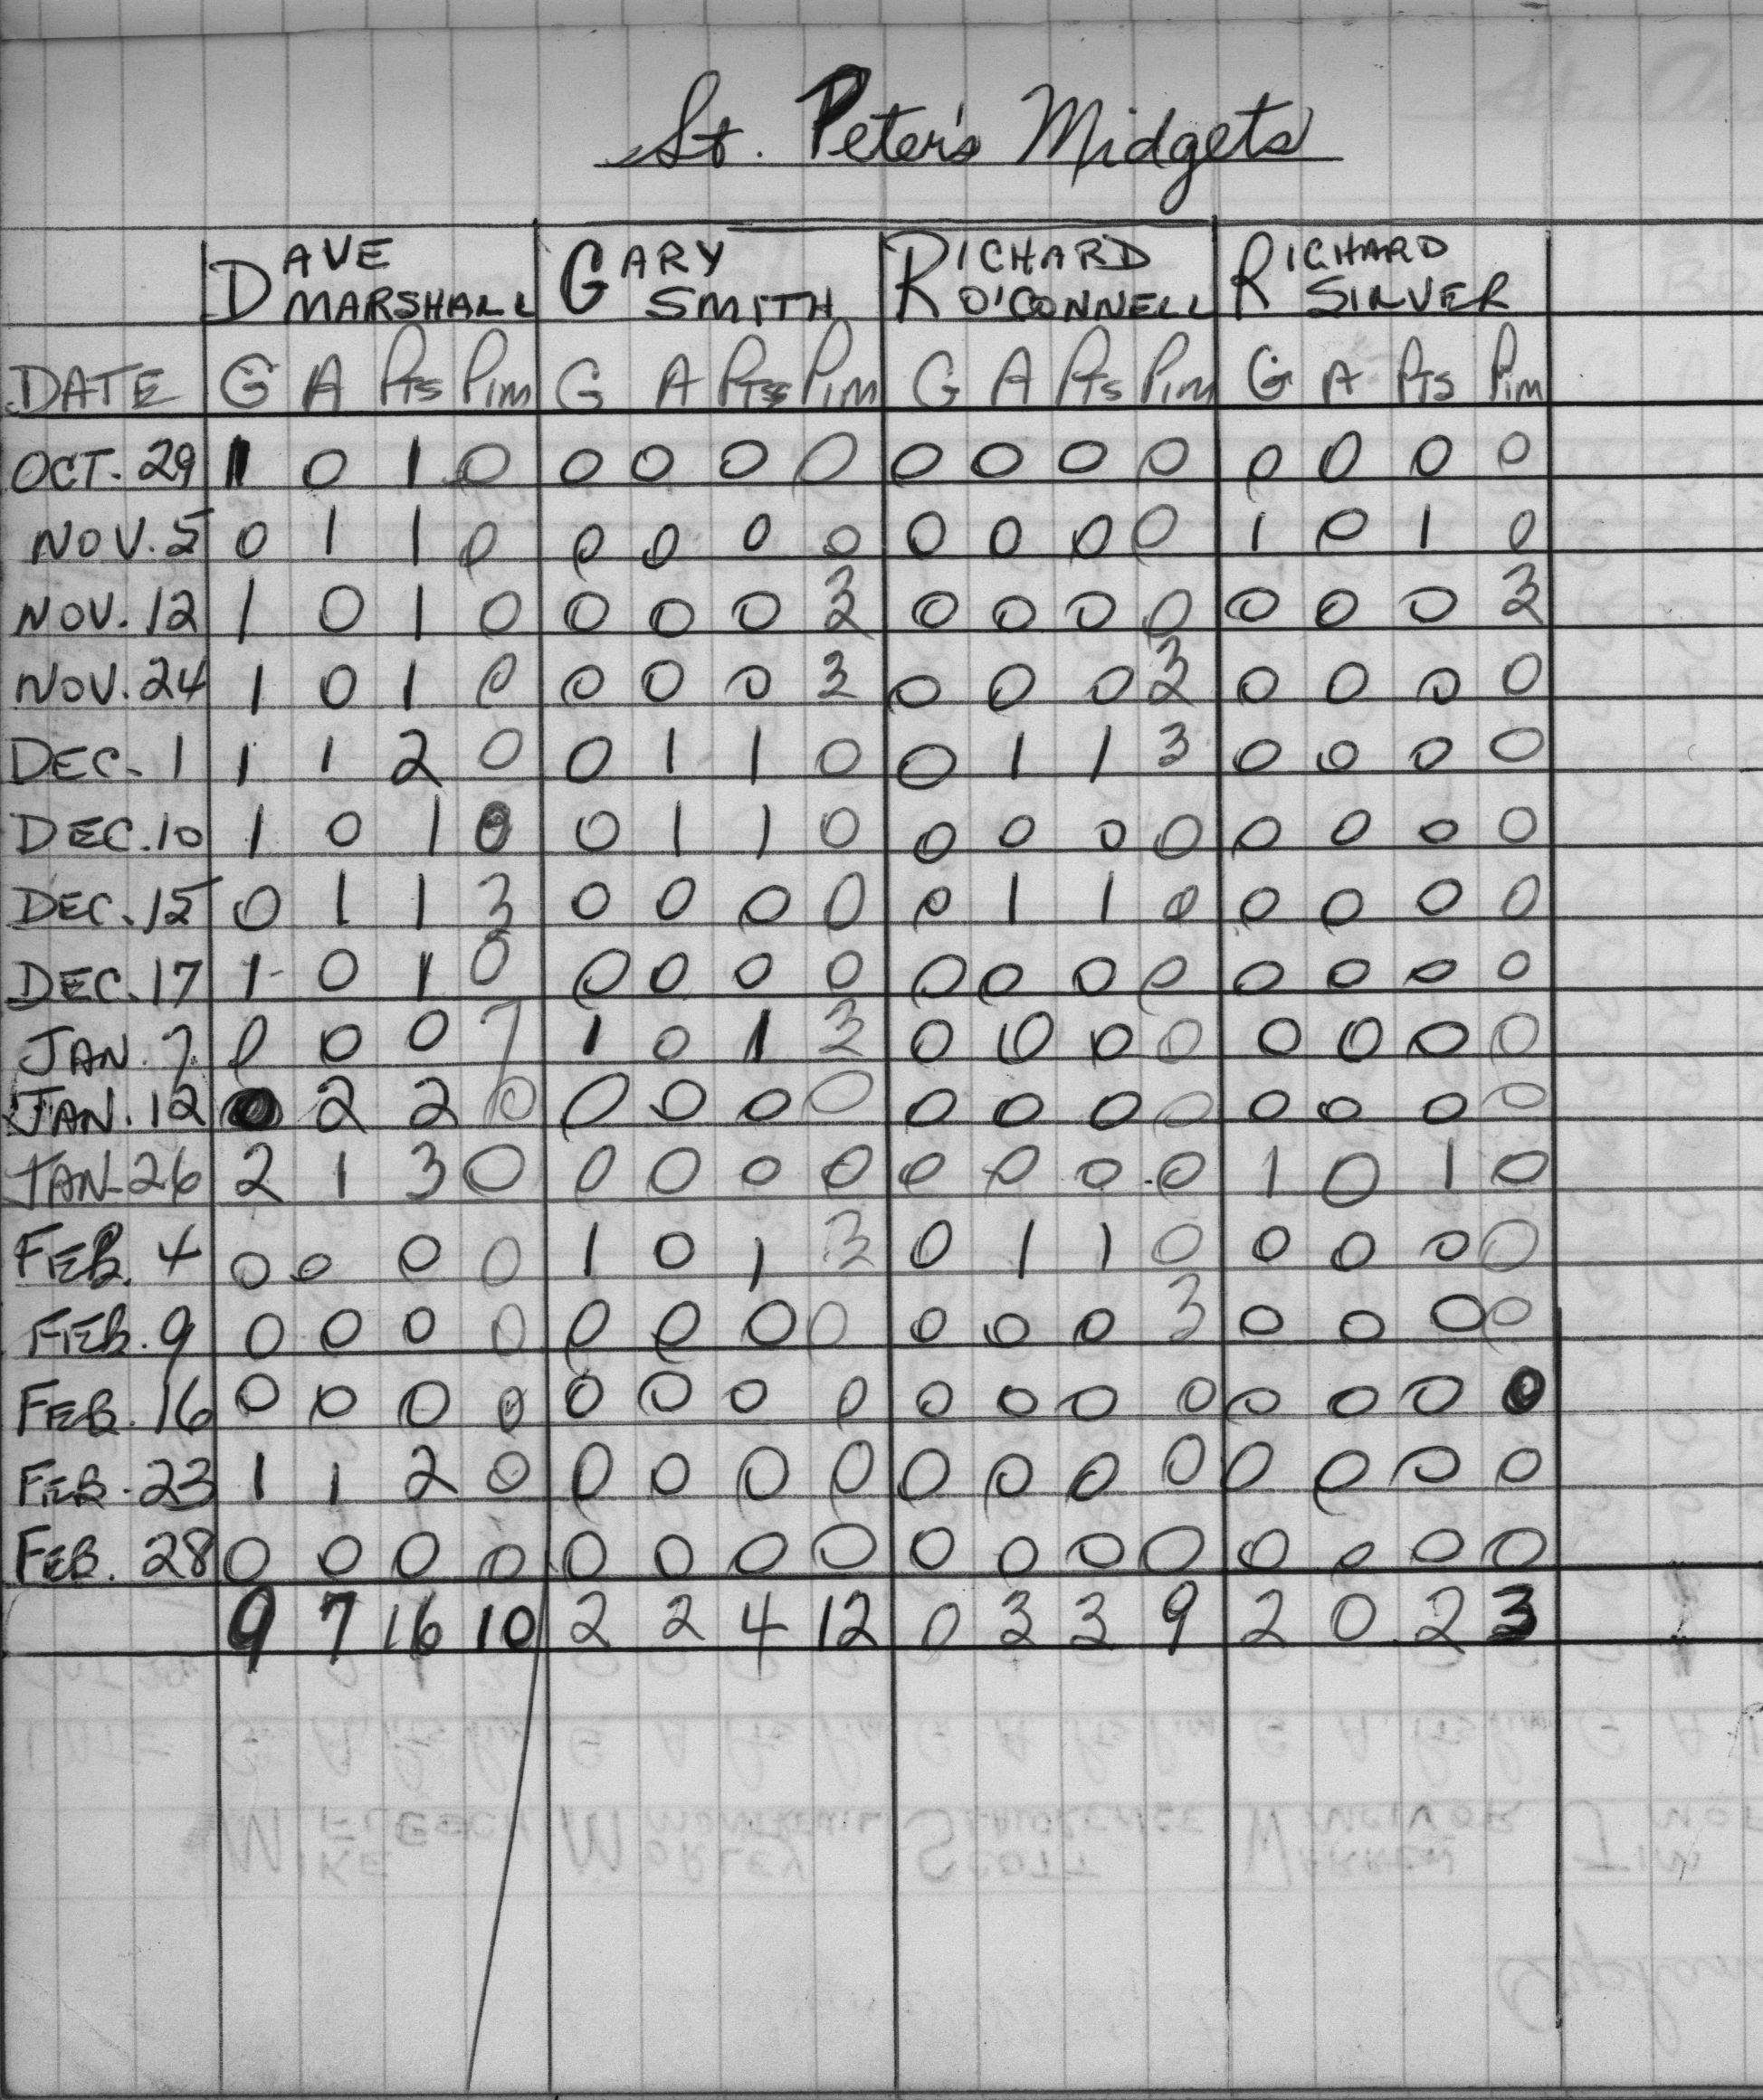 St. Peter's Midgets
DAVE MARSHALL GARY SMITH RICHARD O'CONNELL RICHARD SILVER
DATE G A Pts Pim G A Pts Pim G A Pts Pim G A Pts Pim
OCT. 29 1 0 1 0 0 0 0 0 0 0 0 0 0 0 0 0
NOV. 5 0 1 1 0 0 0 0 0 0 0 0 0 1 0 1 0
NOV. 12 1 0 1 0 0 0 0 3 0 0 0 0 0 0 0 3
NOV. 24 1 0 1 0 0 0 0 3 0 0 0 3 0 0 0 0
DEC. 1 1 1 2 0 0 1 1 0 0 1 1 3 0 0 0 0
DEC. 10 1 0 1 0 0 1 1 0 0 0 0 0 0 0 0 0
DEC. 15 0 1 1 3 0 0 0 0 0 1 1 0 0 0 0 0
DEC. 17 1 0 1 0 0 0 0 0 0 0 0 0 0 0 0 0
JAN. 7 0 0 0 7 1 0 1 3 0 0 0 0 0 0 0 0
JAN. 12 0 2 2 0 0 0 0 0 0 0 0 0 0 0 0 0
JAN-26 2 1 3 0 0 0 0 0 0 0 0 0 1 0 1 0
FEB. 4 0 0 0 0 1 0 1 3 0 1 1 0 0 0 0 0
FEB. 9 0 0 0 0 0 0 0 0 0 0 0 3 0 0 0 0
FEB. 16 0 0 0 0 0 0 0 0 0 0 0 0 0 0 0 0
FEB. 23 1 1 2 0 0 0 0 0 0 0 0 0 0 0 0 0
FEB. 28 0 0 0 0 0 0 0 0 0 0 0 0 0 0 0 0
9 7 16 10 2 2 4 12 0 3 3 9 2 0 2 3